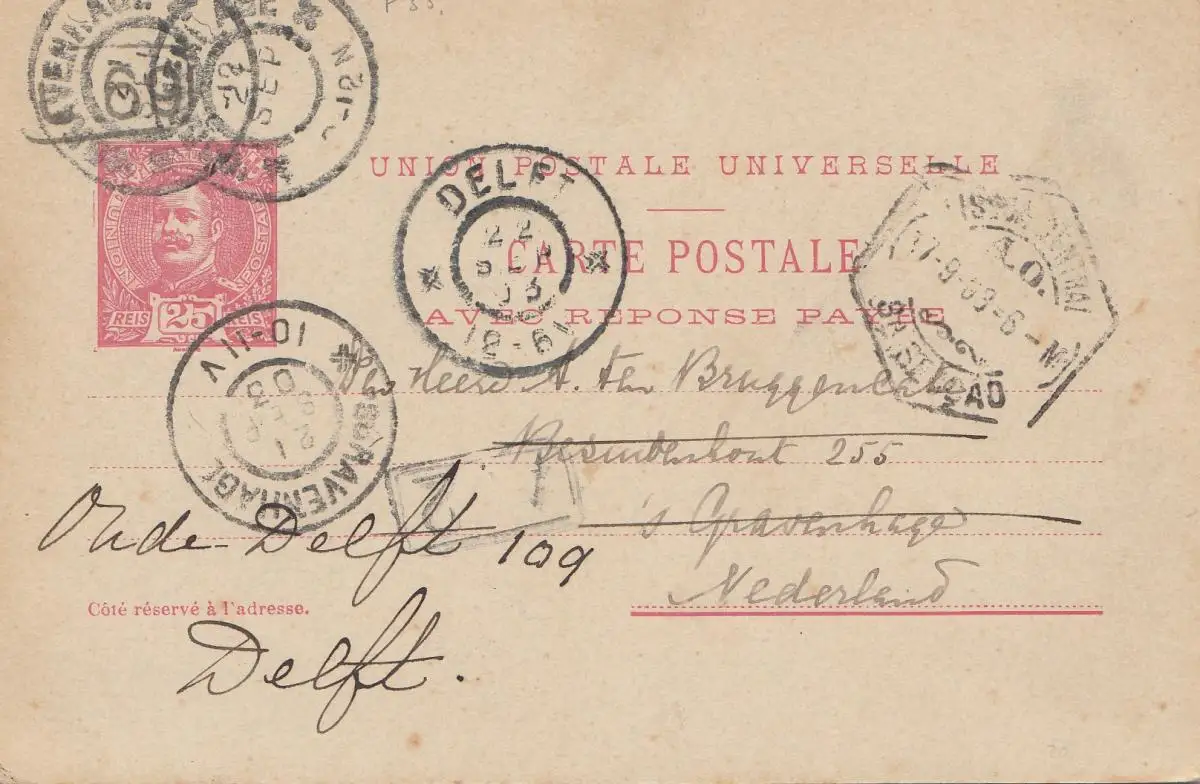 N 12-
28
SEP
UNION POSTALE UNIVERSELLE
DELFT
22
SEP
03
CARTE POSTALE
AVEC REPONSE PAYÉE
CENTRAL
A.O.
17-9-03-6-M
REIS 25 REIS
10-11 V
21
SEP
03
'S GRAVENHAGE
Den Heere A. ten Bruggencate
255
's Gravenhage
Nederland
Oude Delft 109
Côté réservé à l'adresse.
Delft.